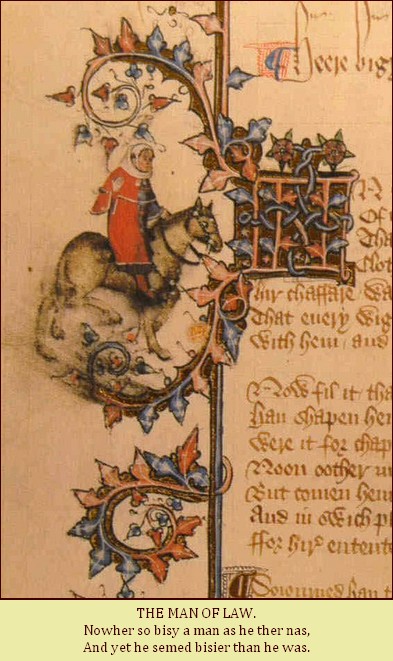 Heere big
N
Of
Tha
Clot
hir chaffare wa
That euery wig
With hem and
Now fil it tha
han shapen hem
Were it for chap
Noon oother m
But comen hem
And in swich pl
ffor hir entente
Soiourned han t
THE MAN OF LAW.
Nowher so bisy a man as he ther nas,
And yet he semed bisier than he was.